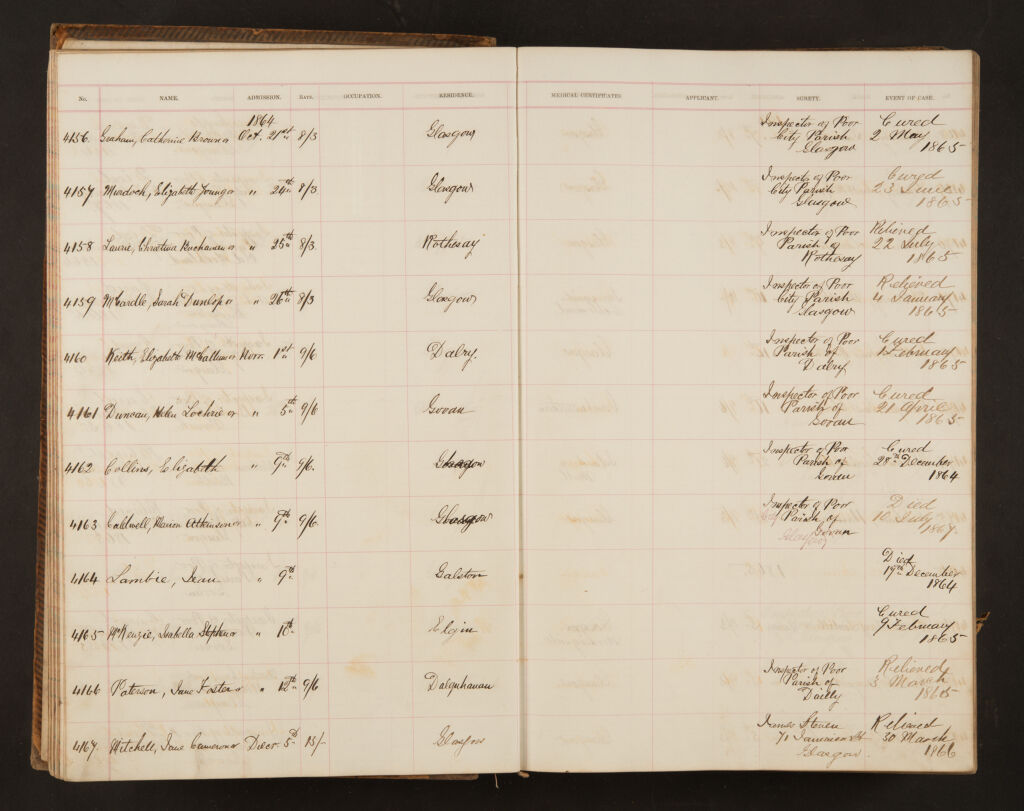 No. NAME. ADMISSION. RATE. OCCUPATION. RESIDENCE. MEDICAL CERTIFICATES. APPLICANT. SURETY. EVENT OF CASE.
1864
4156 Graham, Catherine Brown or Oct. 21st 8/3 Glasgow Inspector of Poor Cured
City Parish 2 May
Glasgow 1865
4157 Murdoch, Elizabeth Young or " 24th 8/3 Glasgow Inspector of Poor Cured
City Parish 23 June
Glasgow 1865
4158 Laurie, Christina Buchanan or " 25th 8/3 Rothesay Inspector of Poor Relieved
Parish of 22 July
Rothesay 1865
4159 McCardle, Sarah Dunlop or " 26th 8/3 Glasgow Inspector of Poor Relieved
City Parish 4 January
Glasgow 1865
4160 Keith, Elizabeth McCallum or Novr. 1st 9/6 Dalry. Inspector of Poor Cured
Parish of 1 February
Dalry 1865
4161 Duncan, Helen Lochrie or " 5th 9/6 Govan Inspector of Poor Cured
Parish of 21 April
Govan 1865
4162 Collins, Elizabeth " 9th 9/6. Glasgow Inspector of Poor Cured
Parish of 28th December
Govan 1864
4163 Caldwell, Marion Atkinson or " 9th 9/6 Glasgow Inspector of Poor Died
City Parish of 10 July
Glasgow Govan 1867.
4164 Lambie, Jean " 9th Galston Died
19th December
1864
4165 McKenzie, Isabella Stephen or " 10th Elgin Cured
9 February
1865
4166 Paterson, Jane Foster or " 12th 9/6 Dalquhanan Inspector of Poor Relieved
Parish of 3 March
Dailly 1865
4167 Mitchell, Jane Cameron or Decr. 5th 15/- Glasgow James Steven Relieved
71 St 30 March
Glasgow 1866